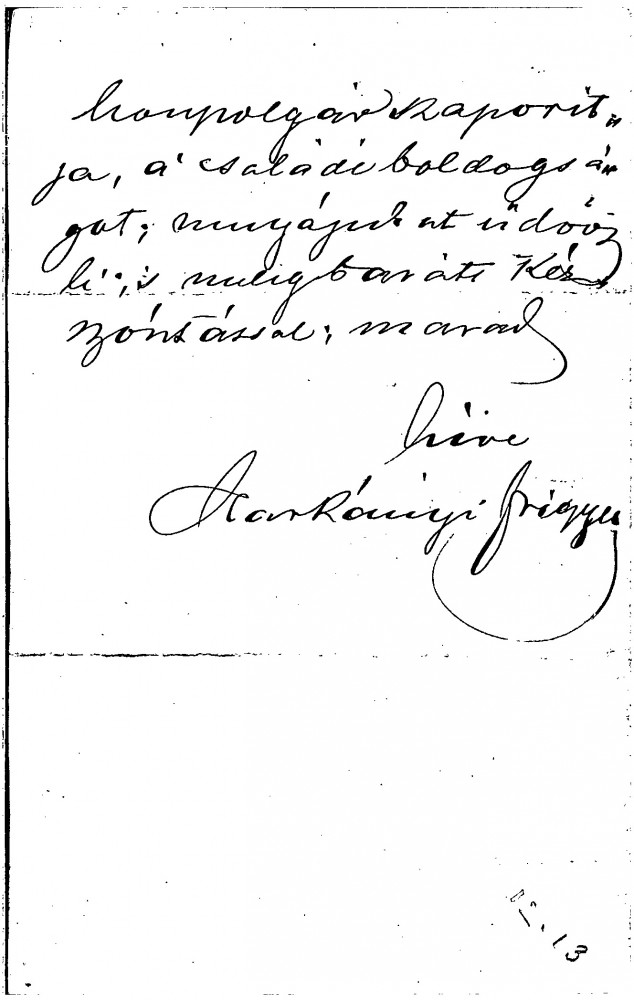 honpolgár szaporít„
ja, a' családi boldogsá„
got; mnyájukat üdvöz
li; 's meleg baráti kéz
szóritással; marad
híve
Harkányi Frigyes
13